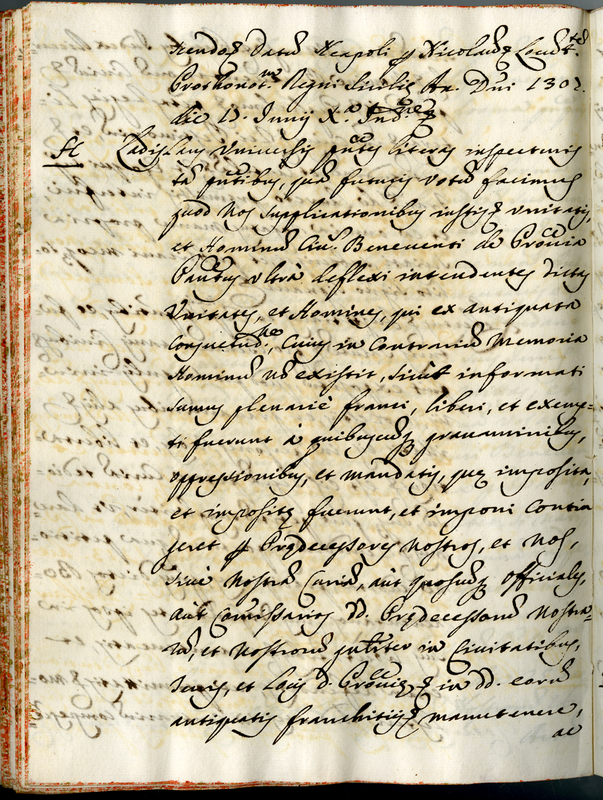 Datum Neapoli p Nicolaum
Regni Siciliæ An. Dni 130
die 17. Junij X.a Ind.nis
Ladislaus Universis pntes literas inspecturis
tã pntibus, quam futuris Notũ facimus
quod Nos supplicationibus Uniũtatis,
et Hominũ Ciũ. Beneventi de Proũcia
ultra deflexi intendentes dictas
Uniũtates, et Homines, qui ex antiquata
Consuetud.ne, Cuius in Contrariũ Memoria
Hominũ nõ existit, sicut informati
sumus plenarie franci, liberi, et exemp-
ti fuerunt à quibuscũq gravaminibus,
oppressionibus, et mandatis, quæ imposita,
et impositæ fuerunt, et imponi Contin
geret p Prædecessores Nostros, et Nos,
sive Nostrã Curiã, aut quosvis Officiales,
aut Comissarios dd. Prædecessorũ Nostro-
rũ, et Nostrorũ in Civitatibus,
Terris, et Locis d. Proũciæ in dd. eorũ
antiquatis franchitijs manutenere,
ac